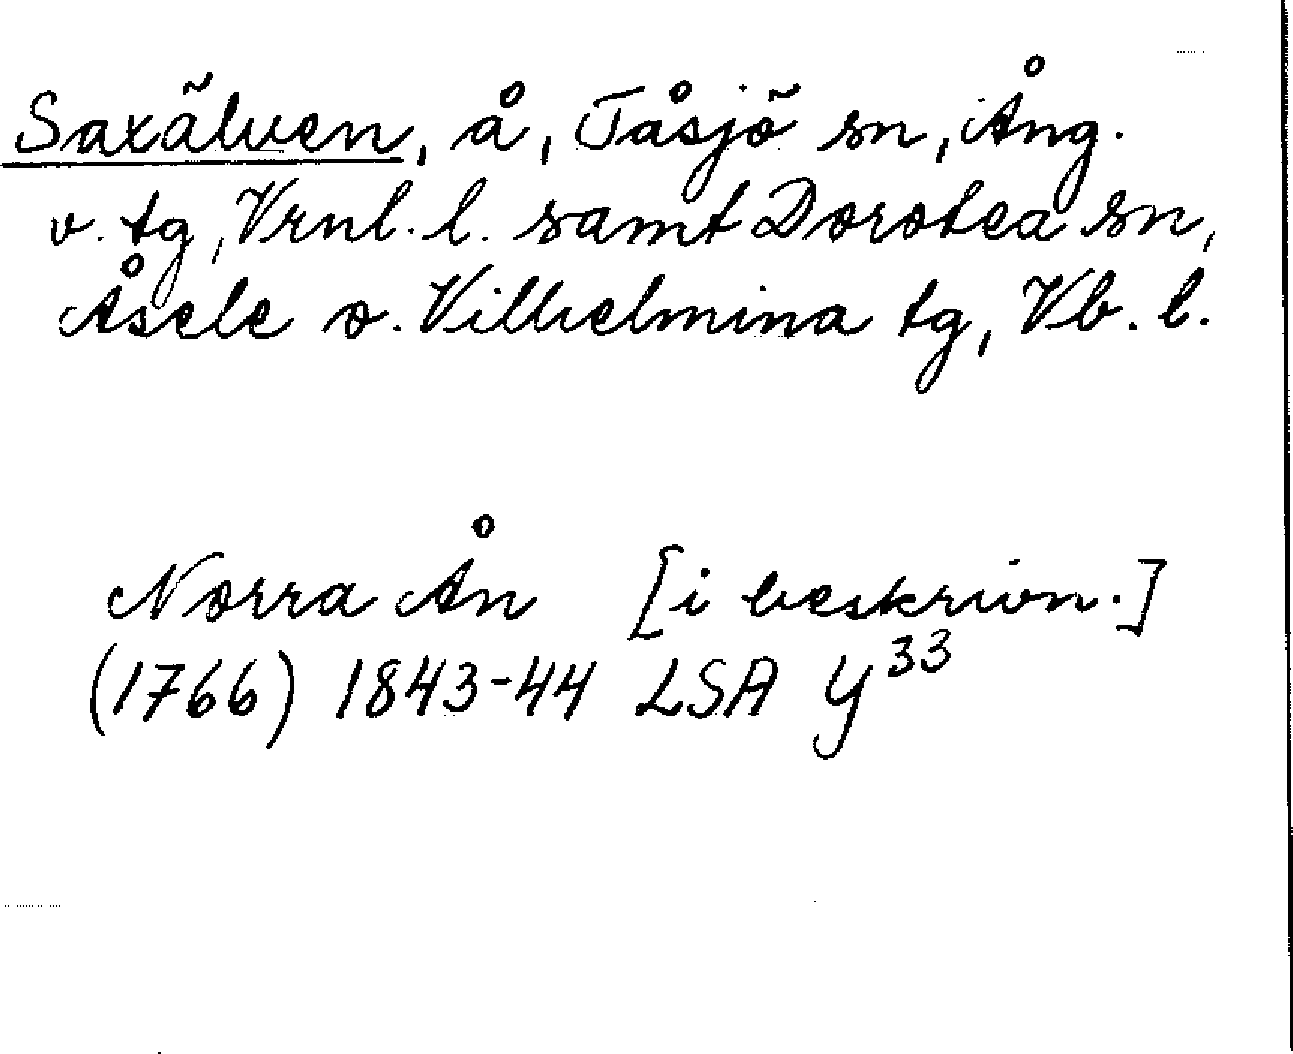 Saxälven, å, Tåsjö sn, Ång.
v. tg, Vrnl. l. samt Dorotea sn,
Åsele o. Vilhelmina tg, Vb. l.
Norra Ån [i beskrivn.]
(1766) 1843-44 LSA Y33